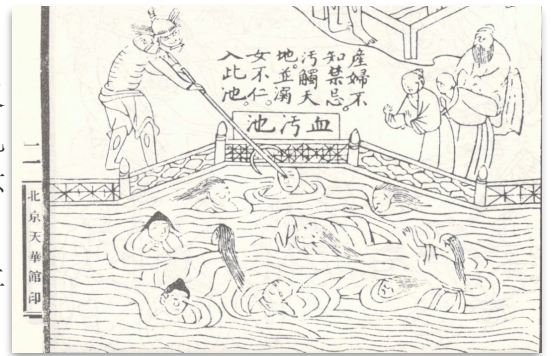 產婦不
知禁忌。
污觸天
地。並溺
女不仁。
入此池。
血污池
北京天華館印